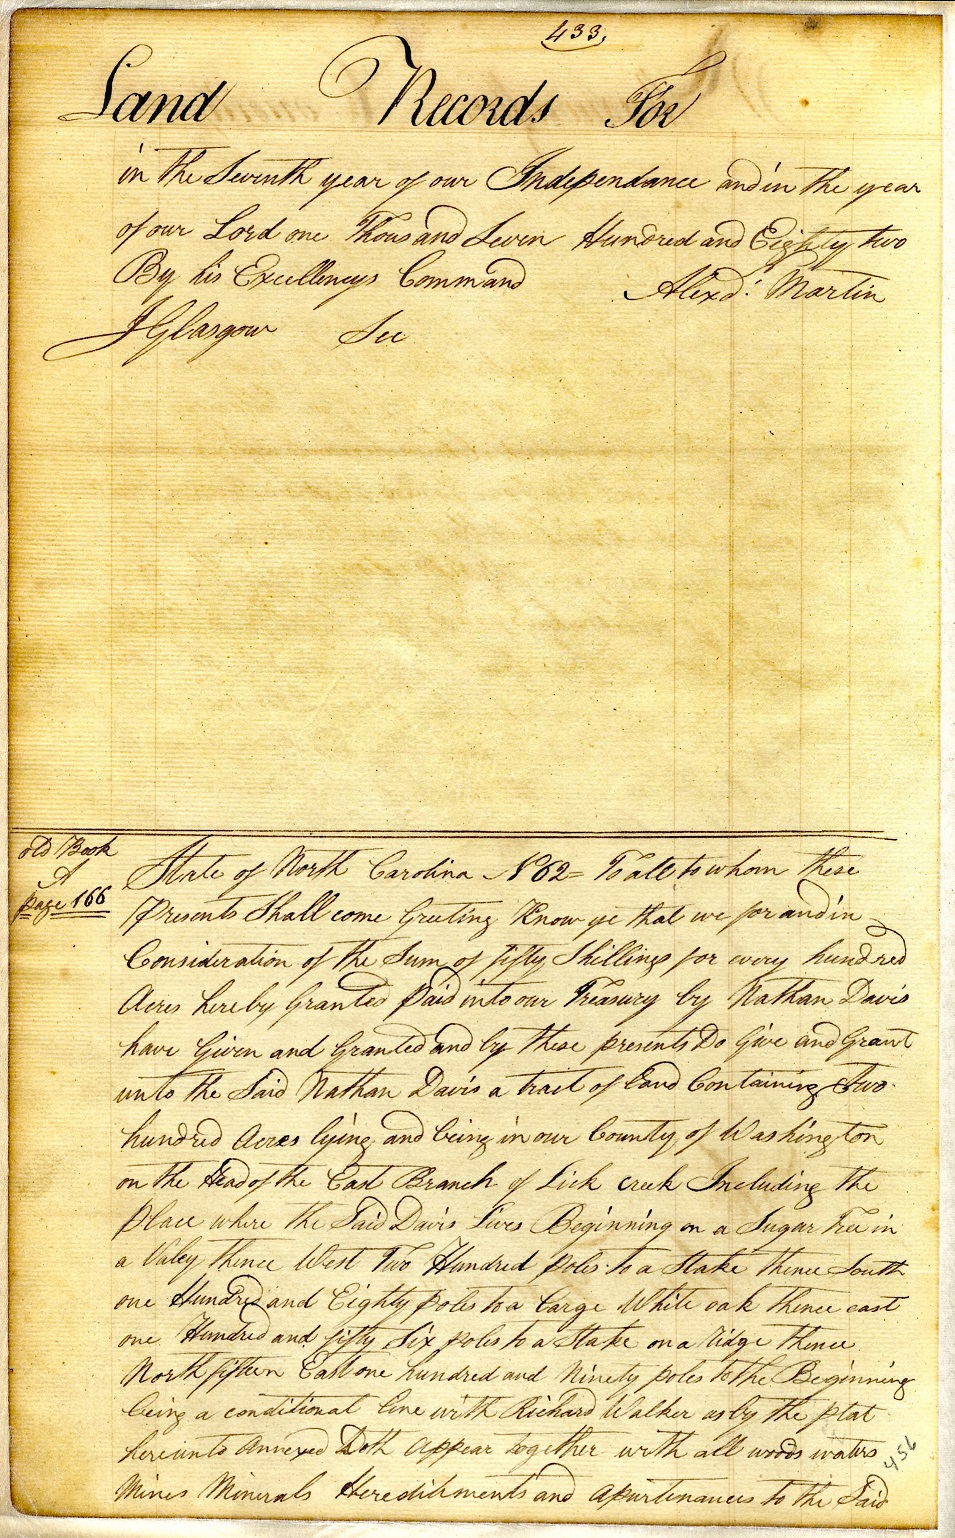 433.
Land Records For
in the Seventh year of our Independance and in the year
of our Lord one Thousand Seven Hundred and Eighty two
By his Excellencys Command Alexd. Martin
J Glasgow Sec
old Book
A
page 166
State of North Carolina No 62= To all to whom these
Presents Shall come Greeting Know ye that we for and in
Consideration of the Sum of fifty Shillings for every hundred
Acres hereby Granted paid into our Treasury by Nathan Davis
have Given and Granted and by these presents Do Give and Grant
unto the Said Nathan Davis a tract of Land Containing Two
hundred Acres lying and being in our County of Washington
on the Head of the East Branch of Lick creek Including the
place where the Said Davis Lives Beginning on a Sugar Tree in
a Valey thence West Two Hundred poles to a Stake thence South
one Hundred and Eighty poles to a Large White oak thence east
one Hundred and fifty Six poles to a Stake on a ridge thence
North fifteen East one hundred and Ninety poles to the Beginning
being a conditional line with Richard Walker as by the plat
hereunto Annexed Doth Appear together with all woods waters
Mines Minerals Hereditiments and apurtenances to the Said
456